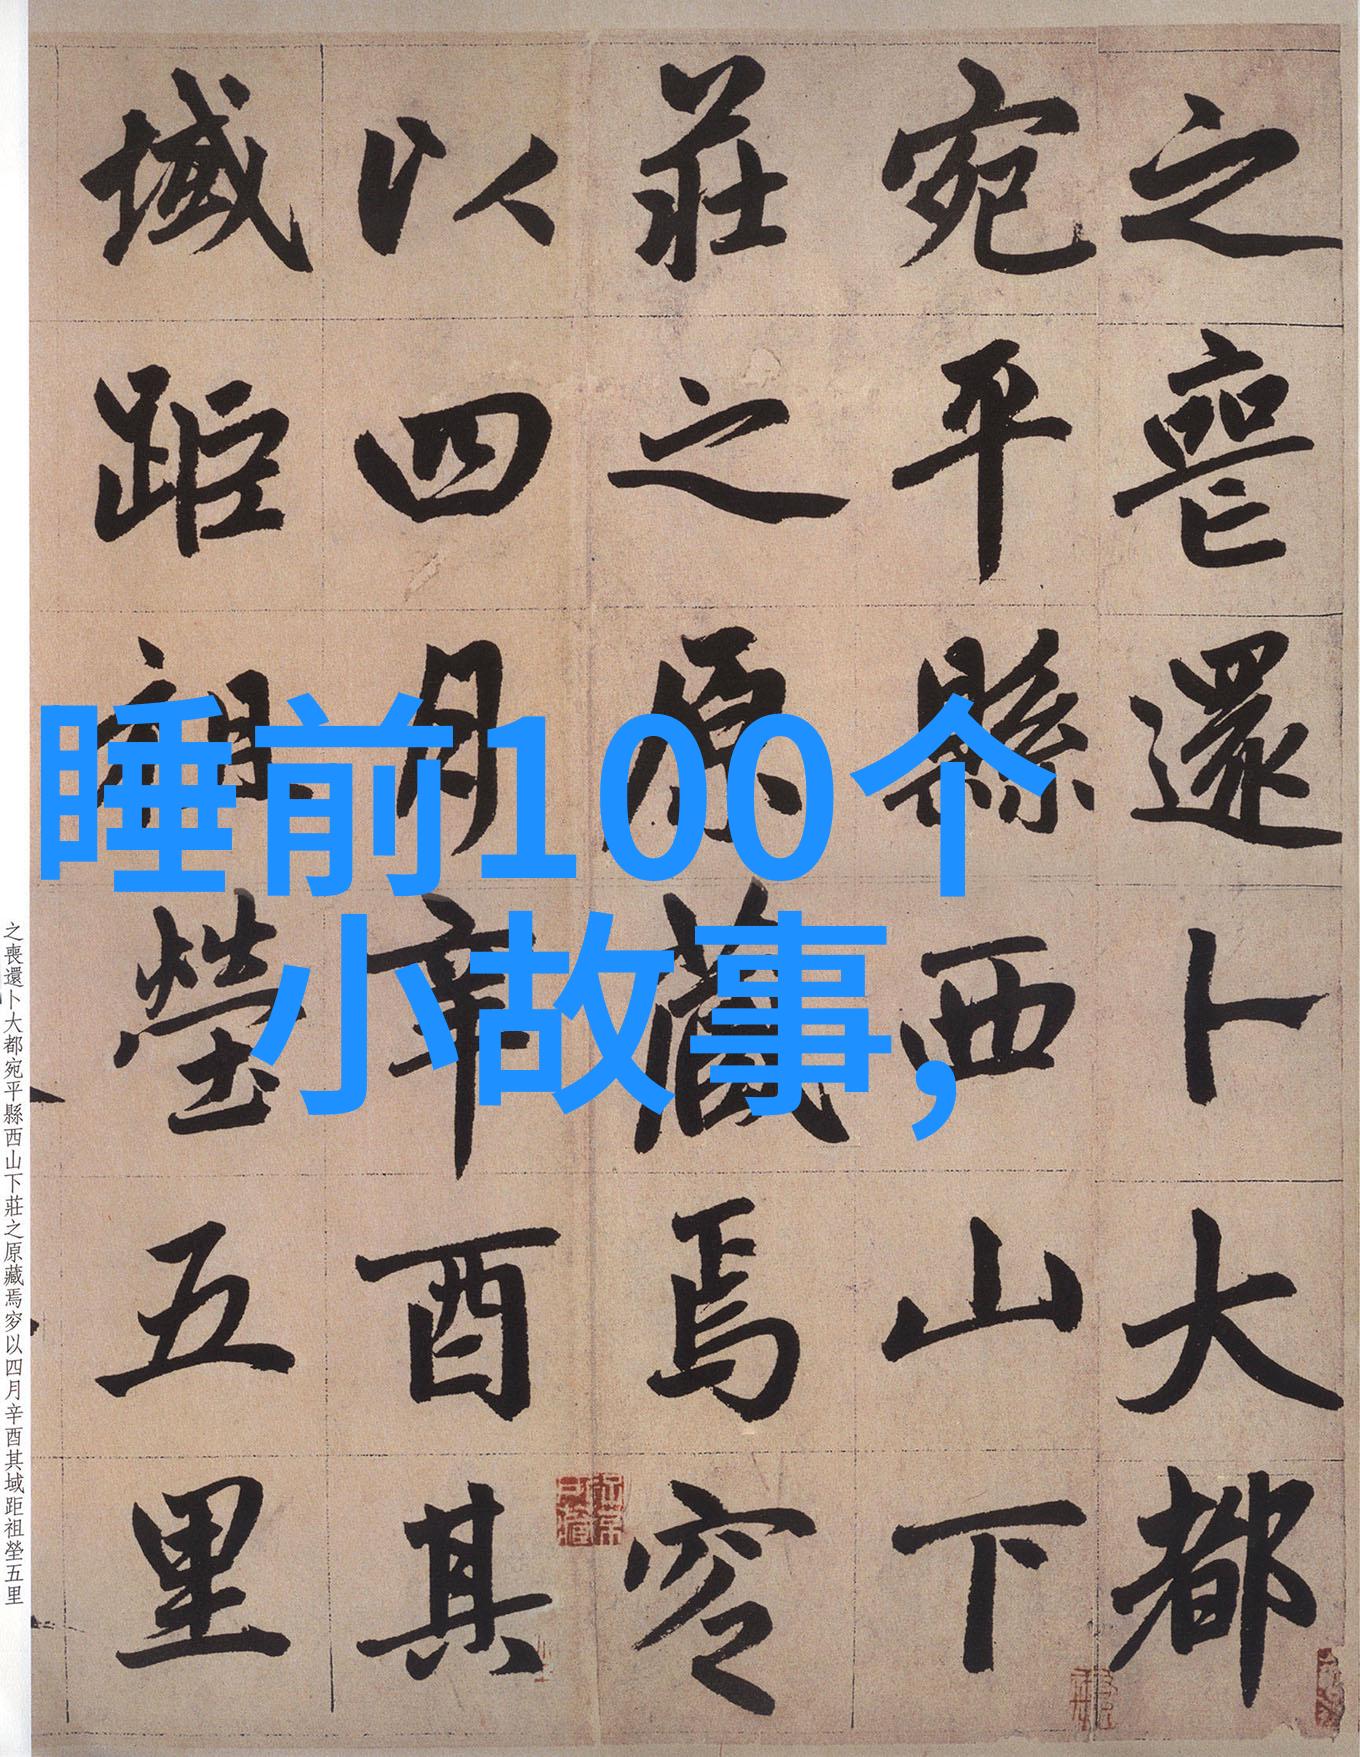 之喪還卜大都
宛平縣西山下
莊之原藏焉穸
以四月辛酉其
域距祖塋五里
睡前100个
小故事,
之喪還卜大都宛平縣西山下莊之原藏焉穸以四月辛酉其域距祖塋五里